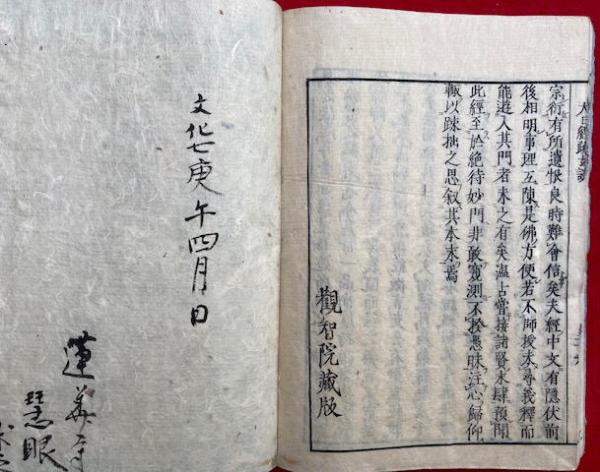 宗術有所遺恨良時難會信矣夫經中文有隱伏前
後相明事理互陳是佛方便若不師授未尋義釋而
能遊入其門者未之有矣溫古嘗接諸賢末肆預聞
此經至於絶待妙門非敢窺測不揆愚昧注心歸仰
輒以疎拙之思叙其本末焉
觀智院藏版
文化七庚午四月日
蓮華寺
慧眼